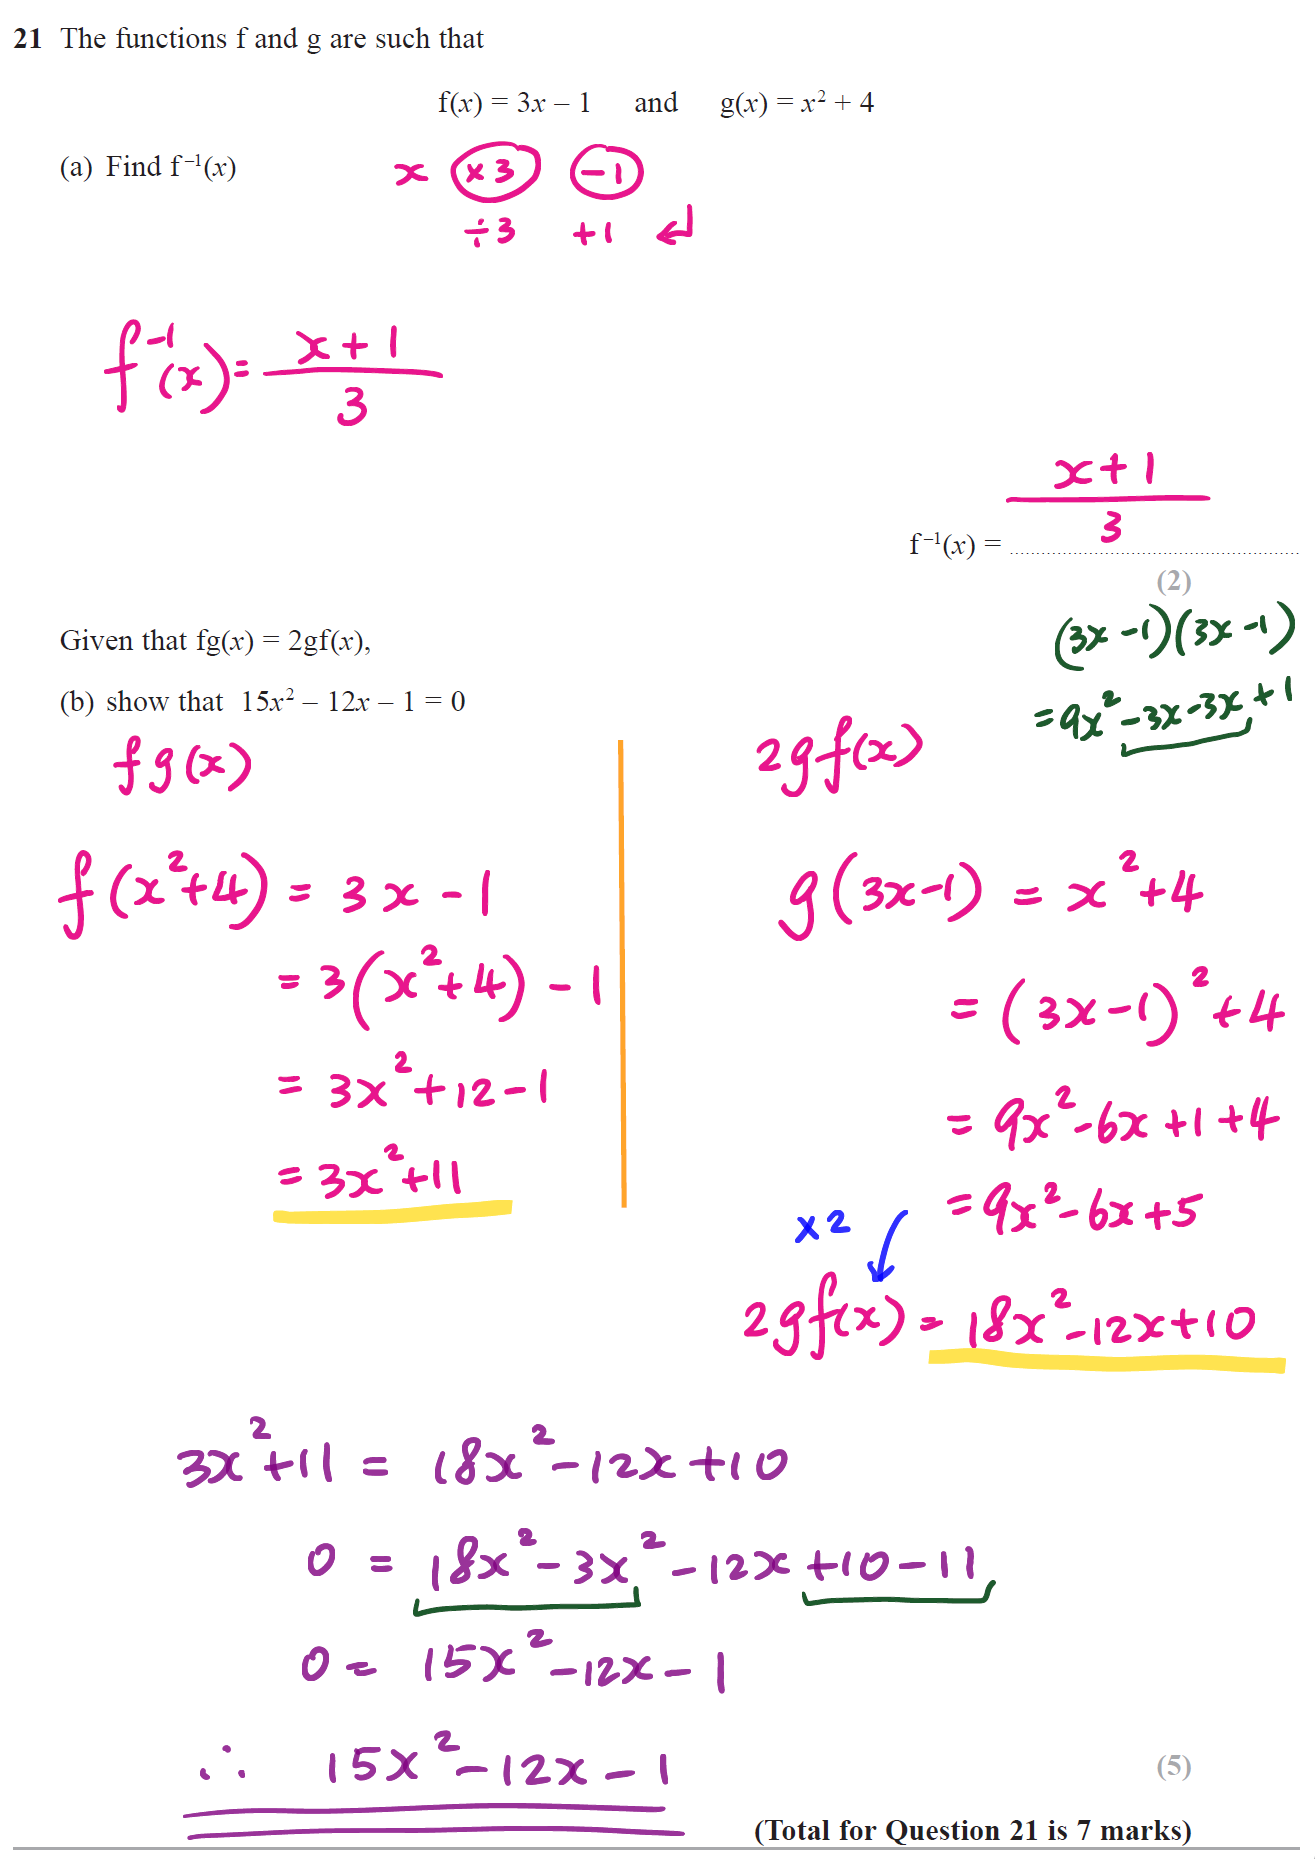 21 The functions f and g are such that
f(x) = 3x – 1 and g(x) = x² + 4
(a) Find f⁻¹(x)
x ×3 −1
÷3 +1
f⁻¹(x) = (x + 1)/3
x + 1
3
f⁻¹(x) = ........................................................
(2)
(3x − 1)(3x − 1)
= 9x² − 3x − 3x + 1
Given that fg(x) = 2gf(x),
(b) show that 15x² – 12x – 1 = 0
fg(x)
f(x² + 4) = 3x − 1
= 3(x² + 4) − 1
= 3x² + 12 − 1
= 3x² + 11
2gf(x)
g(3x − 1) = x² + 4
= (3x − 1)² + 4
= 9x² − 6x + 1 + 4
= 9x² − 6x + 5
×2
2gf(x) = 18x² − 12x + 10
3x² + 11 = 18x² − 12x + 10
0 = 18x² − 3x² − 12x + 10 − 11
0 = 15x² − 12x − 1
∴ 15x² − 12x − 1
(5)
(Total for Question 21 is 7 marks)